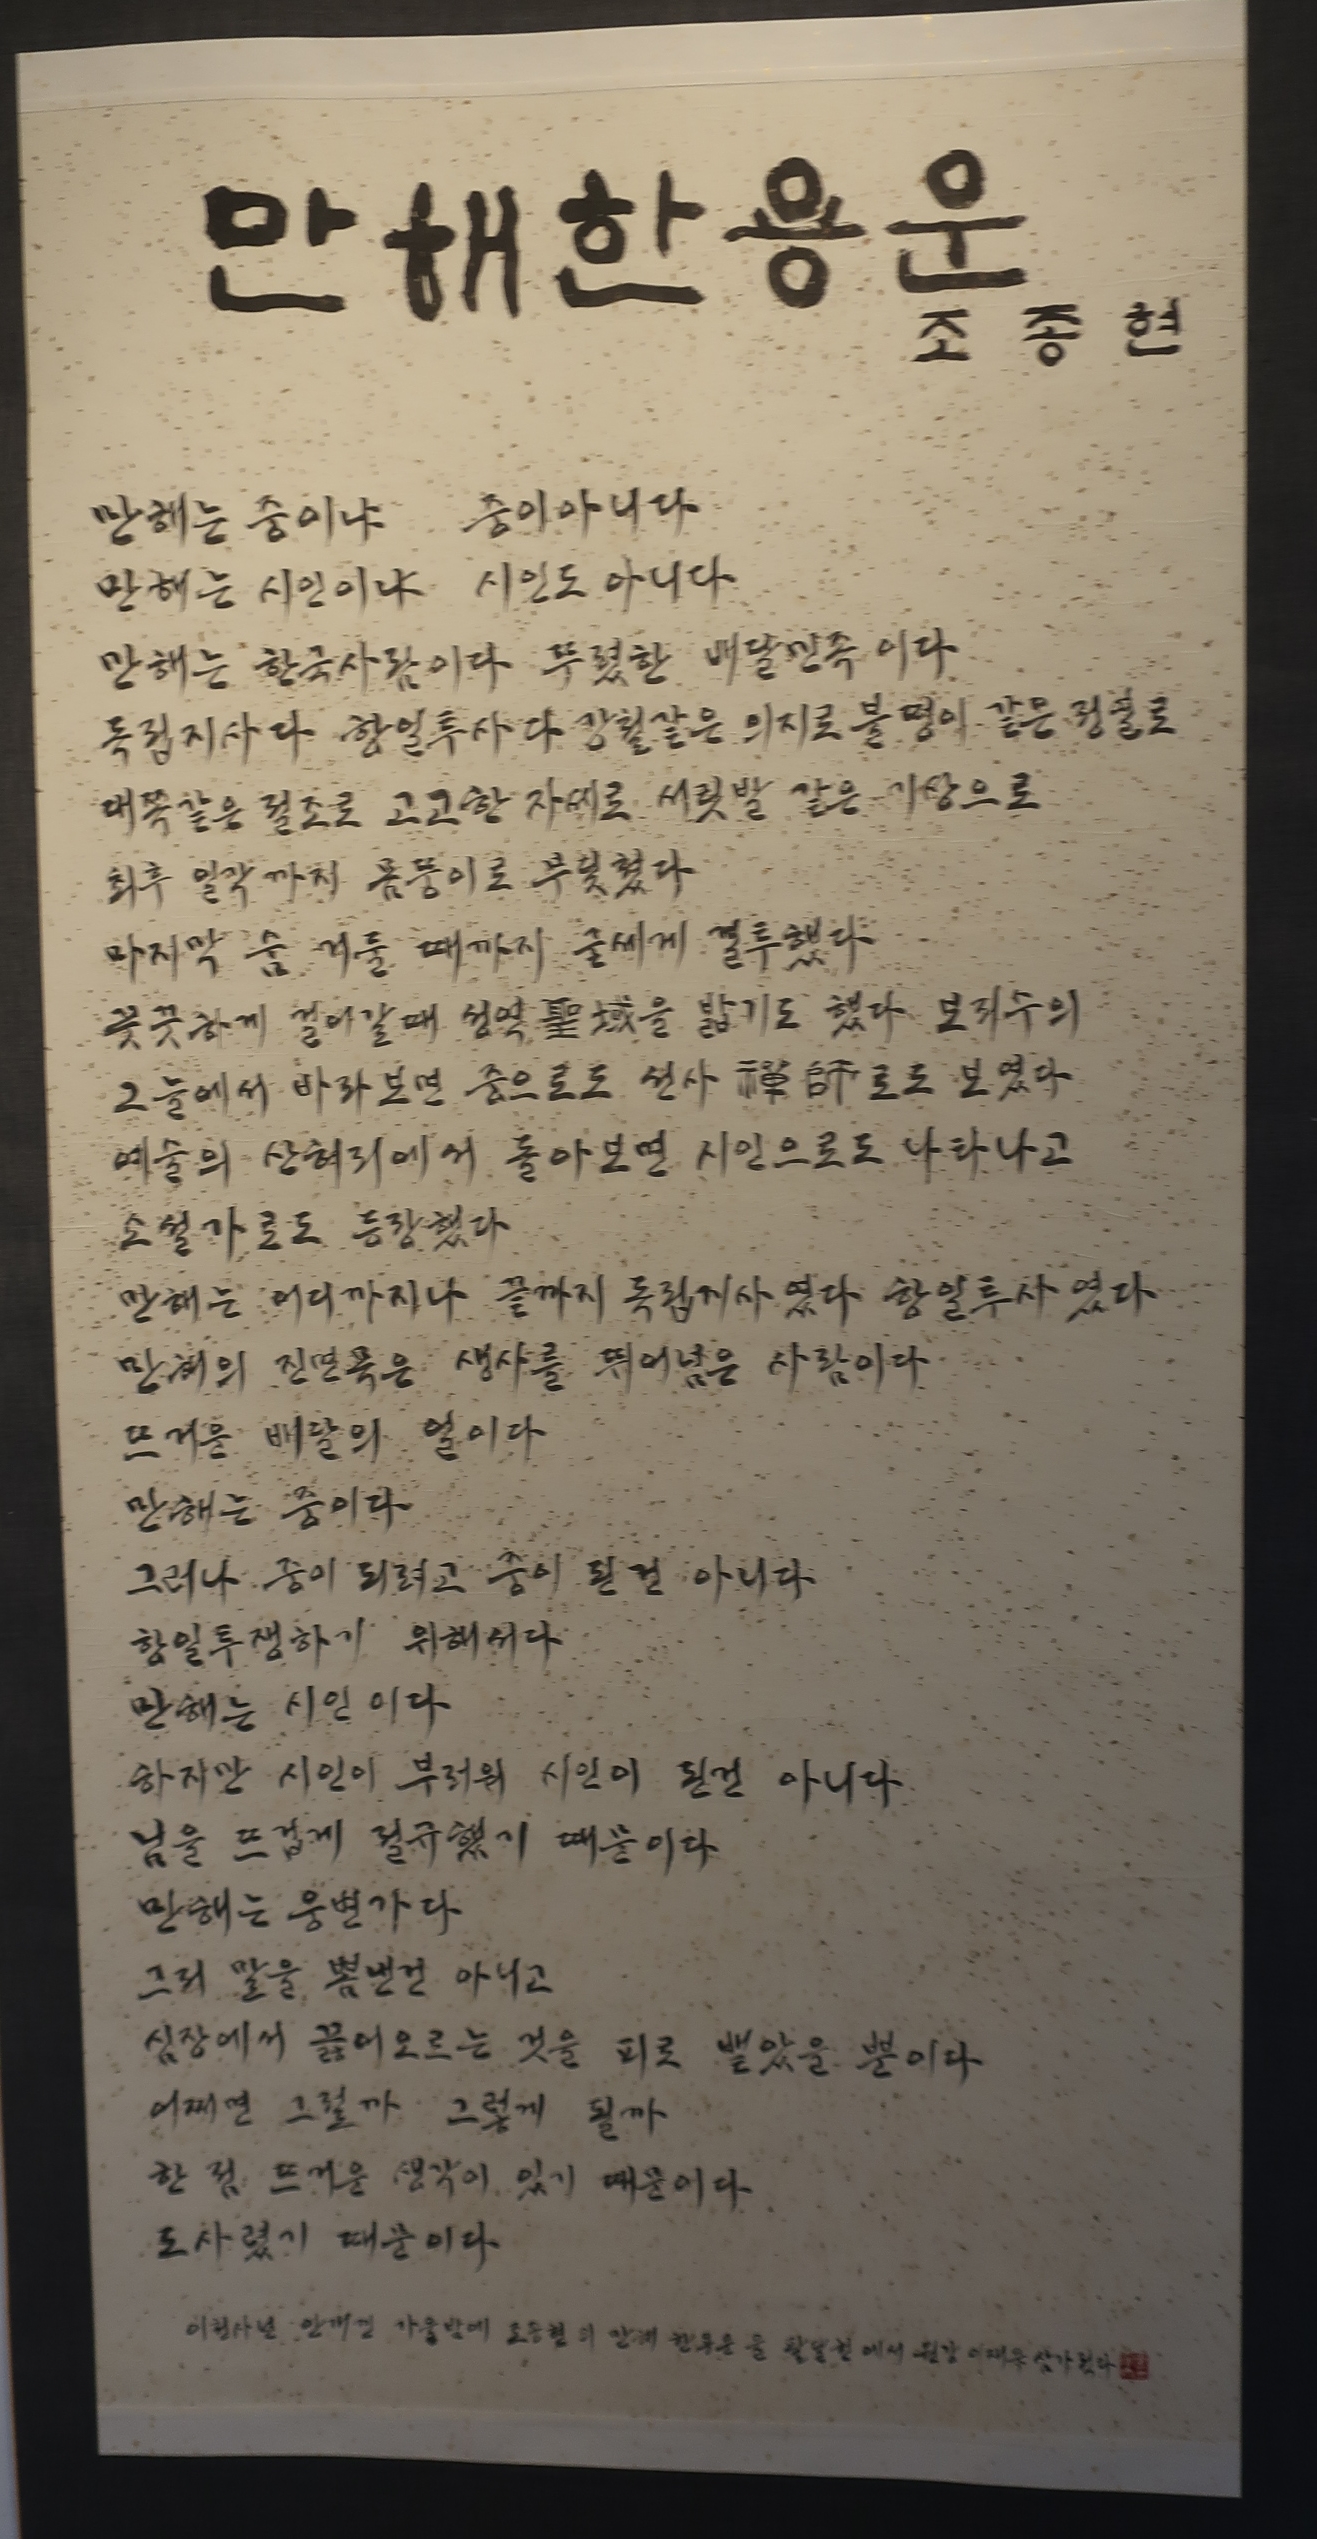 만해한용운
조종현
만해는 중이냐 중이아니다
만해는 시인이냐 시인도 아니다
만해는 한국사람이다 뚜렸한 배달민족 이다
독립지사다 항일투사다 강철같은 의지로 불덩이 같은 정열로
대쪽같은 절조로 고고한 자세로 서릿발 같은 기상으로
최후 일각까지 몸뚱이로 부딪쳤다
마지막 숨 거둘 때까지 굳세게 결투했다
꿋꿋하게 걸어갈때 성역聖域을 밟기도 했다 보리수의
그늘에서 바라보면 중으로도 선사 禪師로도 보였다
예술의 산허리에서 돌아보면 시인으로도 나타나고
소설가로도 등장했다
만해는 어디까지나 끝까지 독립지사였다 항일투사였다
만해의 진면목은 생사를 뛰어넘은 사람이다
뜨거운 배달의 얼이다
만해는 중이다
그러나 중이 되려고 중이 된건 아니다
항일투쟁하기 위해서다
만해는 시인이다
하지만 시인이 부러워 시인이 된건 아니다
님을 뜨겁게 절규했기 때문이다
만해는 웅변가다
그의 말을 뽐낸건 아니고
심장에서 끓어오르는 것을 피로 뱉았을 뿐이다
어쩌면 그럴까 그렇게 될까
한 점 뜨거운 생각이 있기 때문이다
도사렸기 때문이다
이천사년 안개낀 가을밤에 조종현의 만해 한용운을 에서 삼가쓰다